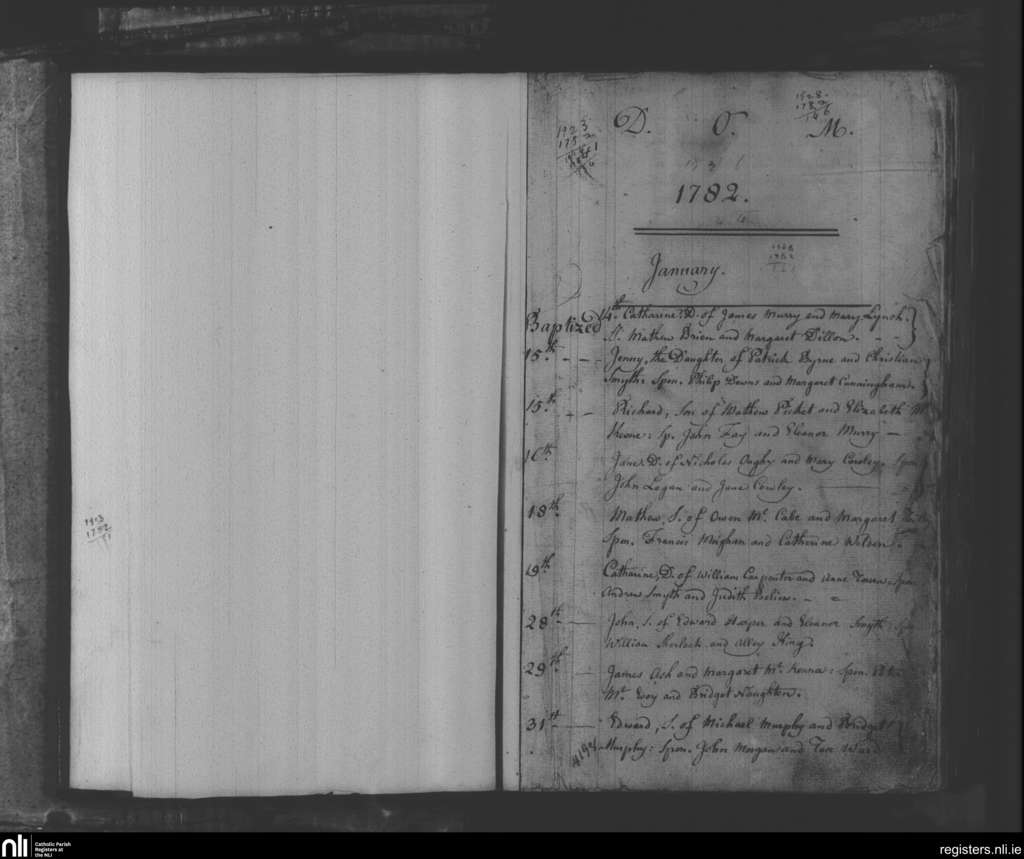 1903
1782
1923
1782
1928
1782
146
D. O. M.
1782.
1928
1782
January.
Baptized 14th. Catharine, D. of James Murry and Mary Lynch.
Mathew Brien and Margaret Dillon.
15th. Jenny, the Daughter of Patrick Byrne and Christian
Smyth: Spon. Philip Downs and Margaret Cunningham.
15th. Richard, Son of Mathew Picket and Elizabeth Mc
Keone: Sp. John Fay and Eleanor Murry
16th. Jane D. of Nicholas and Mary Cowley. Spon
John Logan and Jane Cowley.
18th. Mathew, S. of Owen Mc. Cabe and Margaret
Spon. Francis Meighan and Catherine Weldon.
19th. Catharine, D. of William Carpenter and Anne Spon
Andrew Smyth and Judith
28th. John, S. of Edward Harper and Eleanor Smyth
William Sherlock and Alley King.
29th. James Ash and Margaret Mc. Kenna: Spon.
Mc. Evoy and Bridget Naughten.
31st Edward, S. of Michael Murphy and Bridget
Murphy: Spon. John Morgan and Ward
nli Catholic Parish
Registers at
the NLI
registers.nli.ie